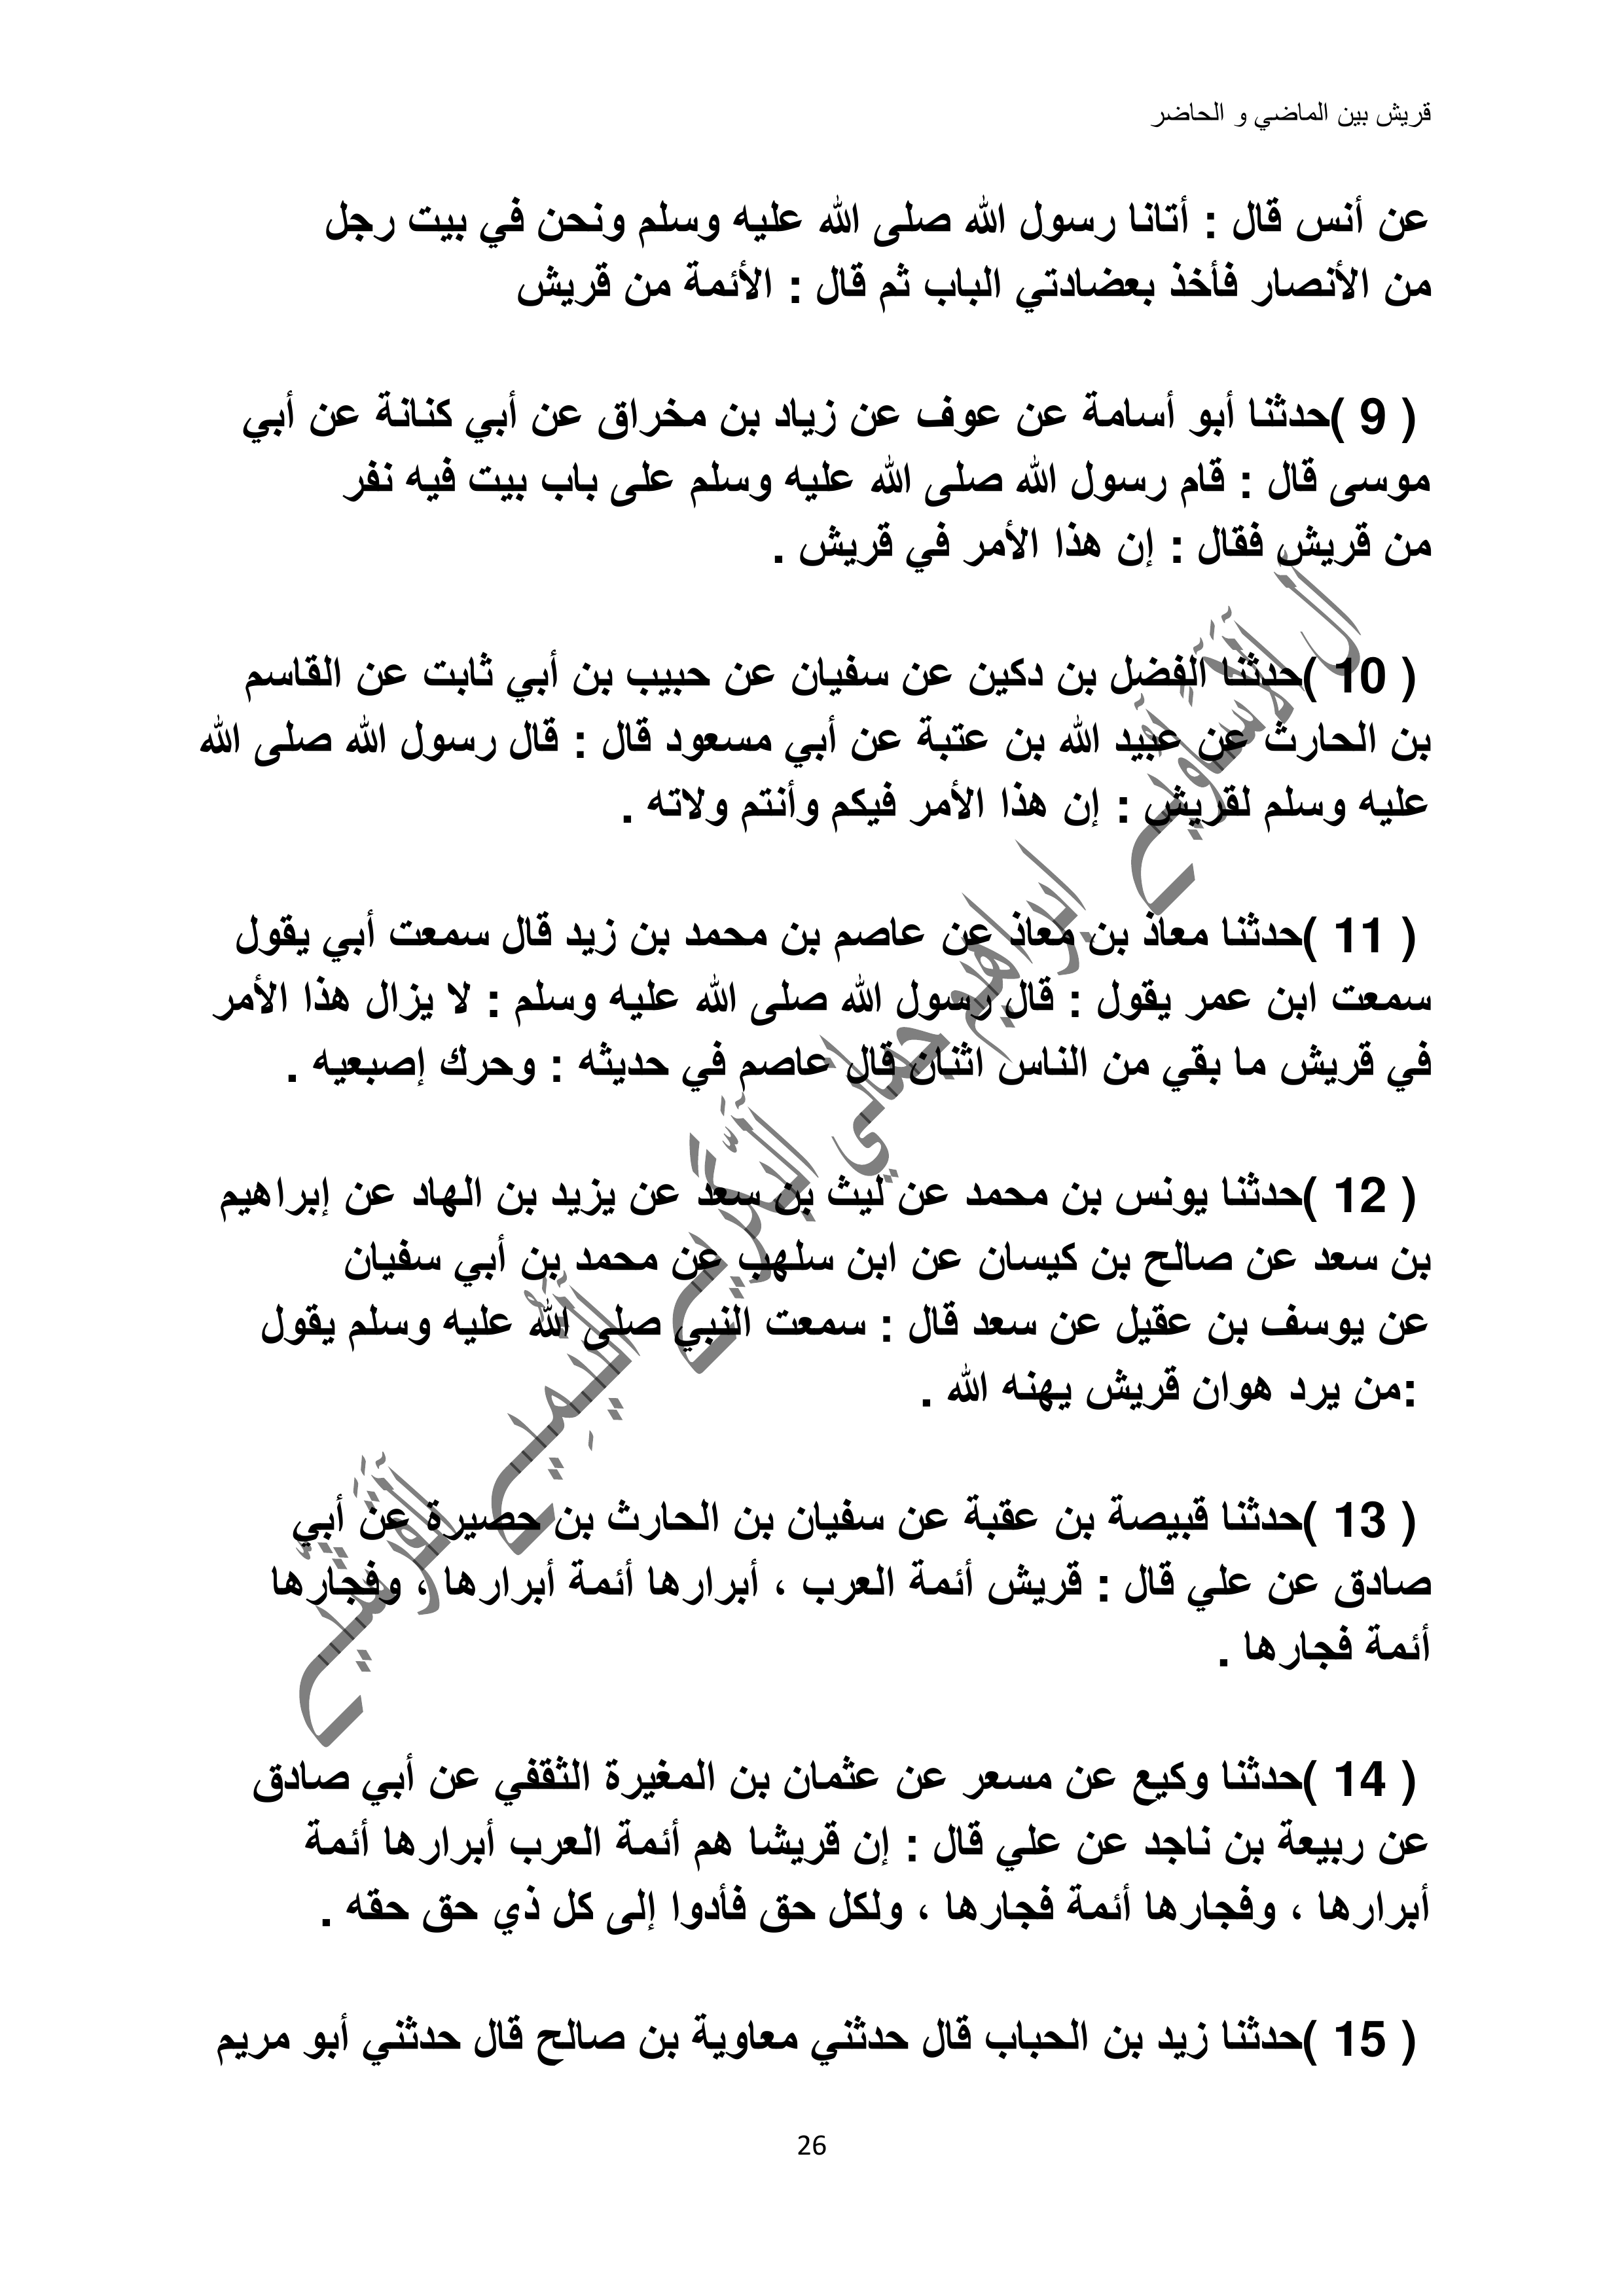 قريش بين الماضي و الحاضر
عن أنس قال : أتانا رسول الله صلى الله عليه وسلم ونحن في بيت رجل
من الأنصار فأخذ بعضادتي الباب ثم قال : الأئمة من قريش
( 9 )حدثنا أبو أسامة عن عوف عن زياد بن مخراق عن أبي كنانة عن أبي
موسى قال : قام رسول الله صلى الله عليه وسلم على باب بيت فيه نفر
من قريش فقال : إن هذا الأمر في قريش .
( 10 )حدثنا الفضل بن دكين عن سفيان عن حبيب بن أبي ثابت عن القاسم
بن الحارث عن عبيد الله بن عتبة عن أبي مسعود قال : قال رسول الله صلى الله
عليه وسلم لقريش : إن هذا الأمر فيكم وأنتم ولاته .
( 11 )حدثنا معاذ بن معاذ عن عاصم بن محمد بن زيد قال سمعت أبي يقول
سمعت ابن عمر يقول : قال رسول الله صلى الله عليه وسلم : لا يزال هذا الأمر
في قريش ما بقي من الناس اثنان قال عاصم في حديثه : وحرك إصبعيه .
( 12 )حدثنا يونس بن محمد عن ليث بن سعد عن يزيد بن الهاد عن إبراهيم
بن سعد عن صالح بن كيسان عن ابن سلهب عن محمد بن أبي سفيان
عن يوسف بن عقيل عن سعد قال : سمعت النبي صلى الله عليه وسلم يقول
:من يرد هوان قريش يهنه الله .
( 13 )حدثنا قبيصة بن عقبة عن سفيان بن الحارث بن حصيرة عن أبي
صادق عن علي قال : قريش أئمة العرب ، أبرارها أئمة أبرارها ، وفجارها
أئمة فجارها .
( 14 )حدثنا وكيع عن مسعر عن عثمان بن المغيرة الثقفي عن أبي صادق
عن ربيعة بن ناجد عن علي قال : إن قريشا هم أئمة العرب أبرارها أئمة
أبرارها ، وفجارها أئمة فجارها ، ولكل حق فأدوا إلى كل ذي حق حقه .
( 15 )حدثنا زيد بن الحباب قال حدثني معاوية بن صالح قال حدثني أبو مريم
26